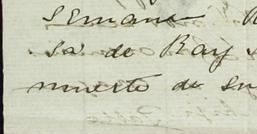 semana
sa de Ray
muerte de su